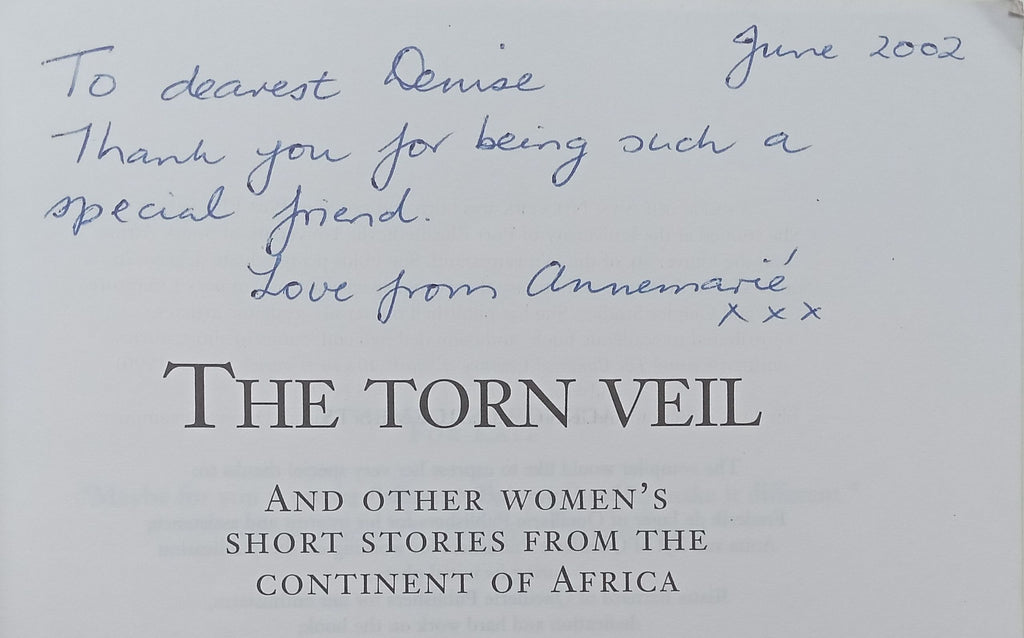 June 2002
To dearest Denise
Thank you for being such a
special friend.
Love from Annemarié
x x x
THE TORN VEIL
AND OTHER WOMEN'S
SHORT STORIES FROM THE
CONTINENT OF AFRICA